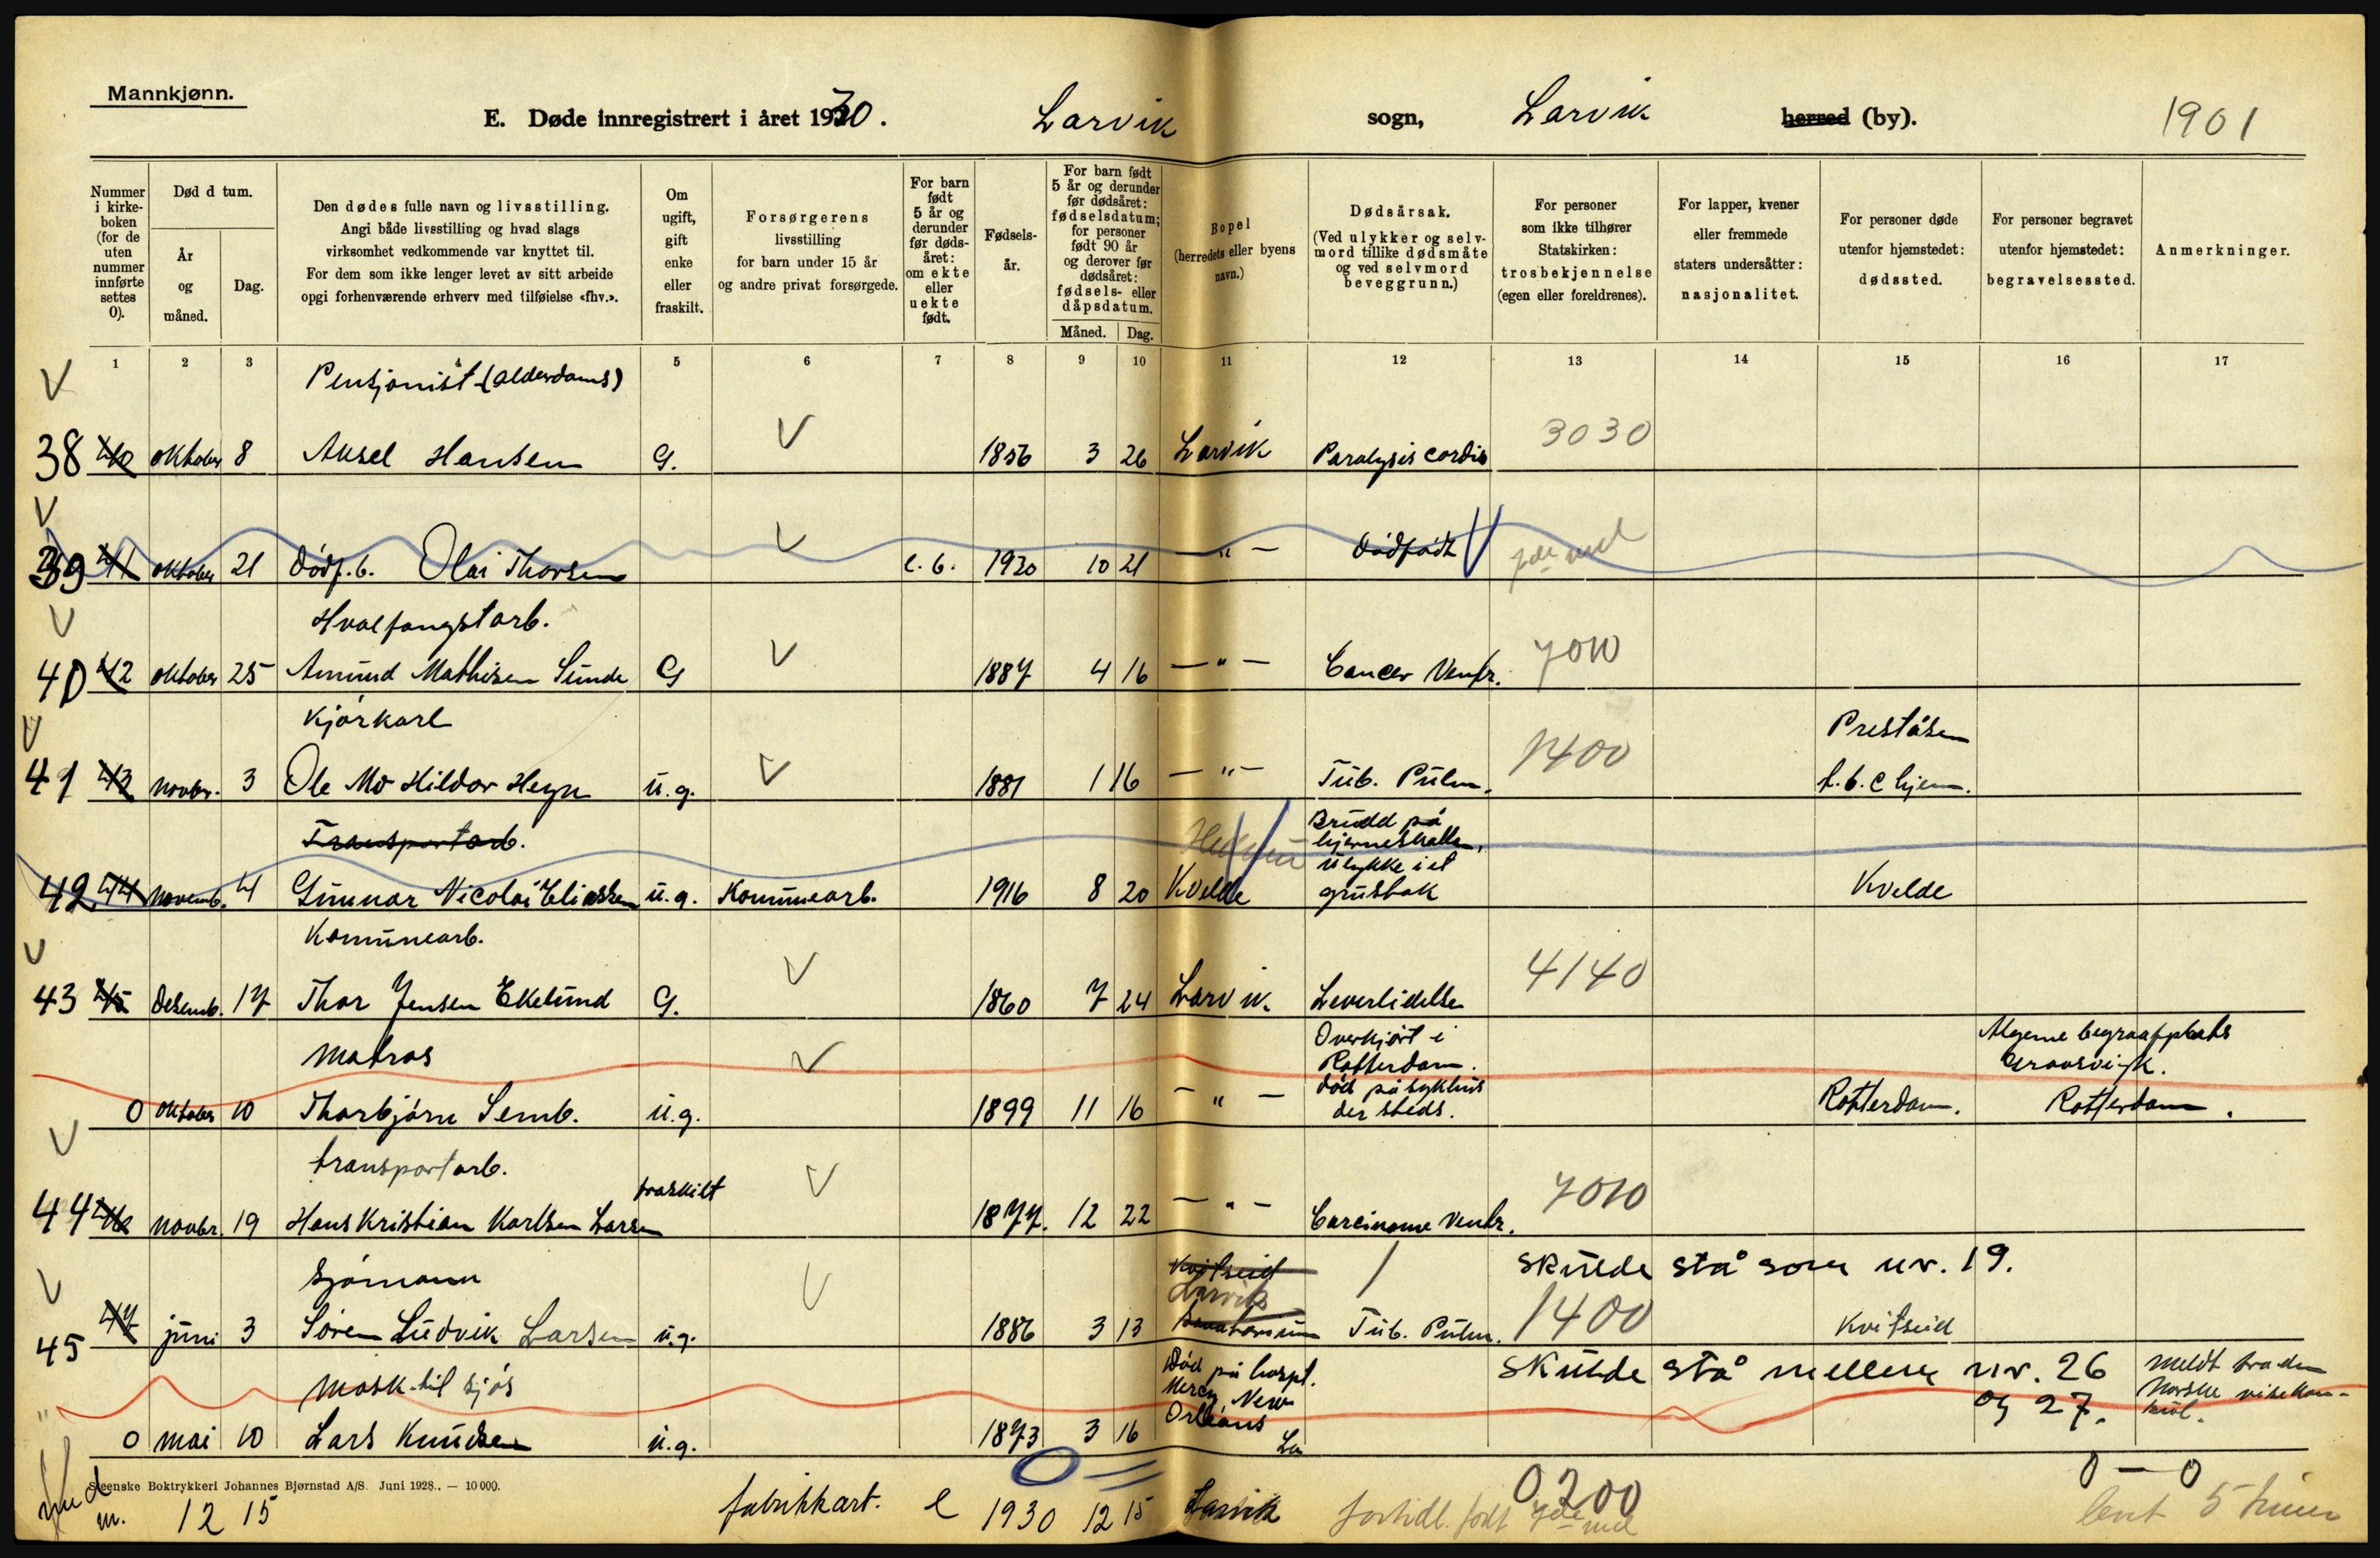 Mannkjønn.
E. Døde innregistrert i året 1930. Larvik sogn, Larvik herred (by). 1901
Nummer i kirke-boken (for de uten nummer innførte settes 0).
Død d tum.
År og måned.
Dag.
Den dødes fulle navn og livsstilling.
Angi både livsstilling og hvad slags
virksomhet vedkommende var knyttet til.
For dem som ikke lenger levet av sitt arbeide
opgi forhenværende erhverv med tilføielse «fhv.».
Om ugift, gift enke eller fraskilt.
Forsørgerens livsstilling
for barn under 15 år
og andre privat forsørgede.
For barn født 5 år og derunder før døds-året: om ekte eller uekte født.
Fødsels-år.
For barn født 5 år og derunder før dødsåret: fødselsdatum; for personer født 90 år og derover før dødsåret: fødsels- eller dåpsdatum.
Måned. Dag.
Bopel
(herredets eller byens navn.)
Dødsårsak.
(Ved ulykker og selv-mord tillike dødsmåte og ved selvmord beveggrunn.)
For personer som ikke tilhører Statskirken: trosbekjennelse (egen eller foreldrenes).
For lapper, kvener eller fremmede staters undersåtter: nasjonalitet.
For personer døde utenfor hjemstedet: dødssted.
For personer begravet utenfor hjemstedet: begravelsessted.
Anmerkninger.
1 2 3 4 5 6 7 8 9 10 11 12 13 14 15 16 17
V Pensjonist (alderdoms)
38 40 oktober 8 Aksel Hansen G. V 1856 3 26 Larvik Paralysis cordis 3030
V
39 41 oktober 21 Dødf. b. Olai Thorsen V e. b. 1930 10 21 — " — Dødfødt
V Hvalfangstarb.
40 42 oktober 25 Amund Mathisen Sunde G V 1887 4 16 — " — Cancer Ventr. 7010
V Kjørkarl Preståsen
41 43 novbr. 3 Ole Mo Hildor Heyn u.g. V 1881 1 16 — " — Tub. Pulm. 1400 t.b.c hjem.
Transportarb. Hedrum Brudd på
hjerneskallen,
ulykke i et
42 44 novemb. 4 Gunnar Nicolai Eliassen u.g. Kommunearb. 1916 8 20 Kvelde grustak Kvelde
V Kommunearb.
43 45 Desemb. 17 Thor Jensen Ekelund G. V 1860 7 24 Larvik. Leverlidelse 4140
Matros V Overkjørt i Algeme begraafplaats
Rotterdam. Crooswijk.
død på sykhus
0 oktober 10 Thorbjørn Semb. u.g. 1899 11 16 — " — der steds. Rotterdam. Rotterdam.
V transportarb.
44 46 novbr. 19 Hans Kristian Karlsen Larsen fraskilt V 1877. 12 22 — " — Carcinome Ventr. 7010
V Sjømann V Kvitseid / skulde stå som nr. 19.
Larvik
45 47 juni 3 Søren Ludvik Larsen u.g. 1886 3 13 Sanatorium Tub. Pulm. 1400 Kvitseid
Mask. til sjøs Død på hospt. skulde stå mellem nr. 26 Meldt fra den
Mercy, New og 27. Norske visekon-
Orleans sul.
0 mai 10 Lars Knudsen u.g. 1873 3 16 La
Steenske Boktrykkeri Johannes Bjørnstad A/S. Juni 1928. — 10 000.
m. 12 15 fabrikkarb. e 1930 12 15 Larvik fortidl. født 0200 0 — 0
levt 5 timer